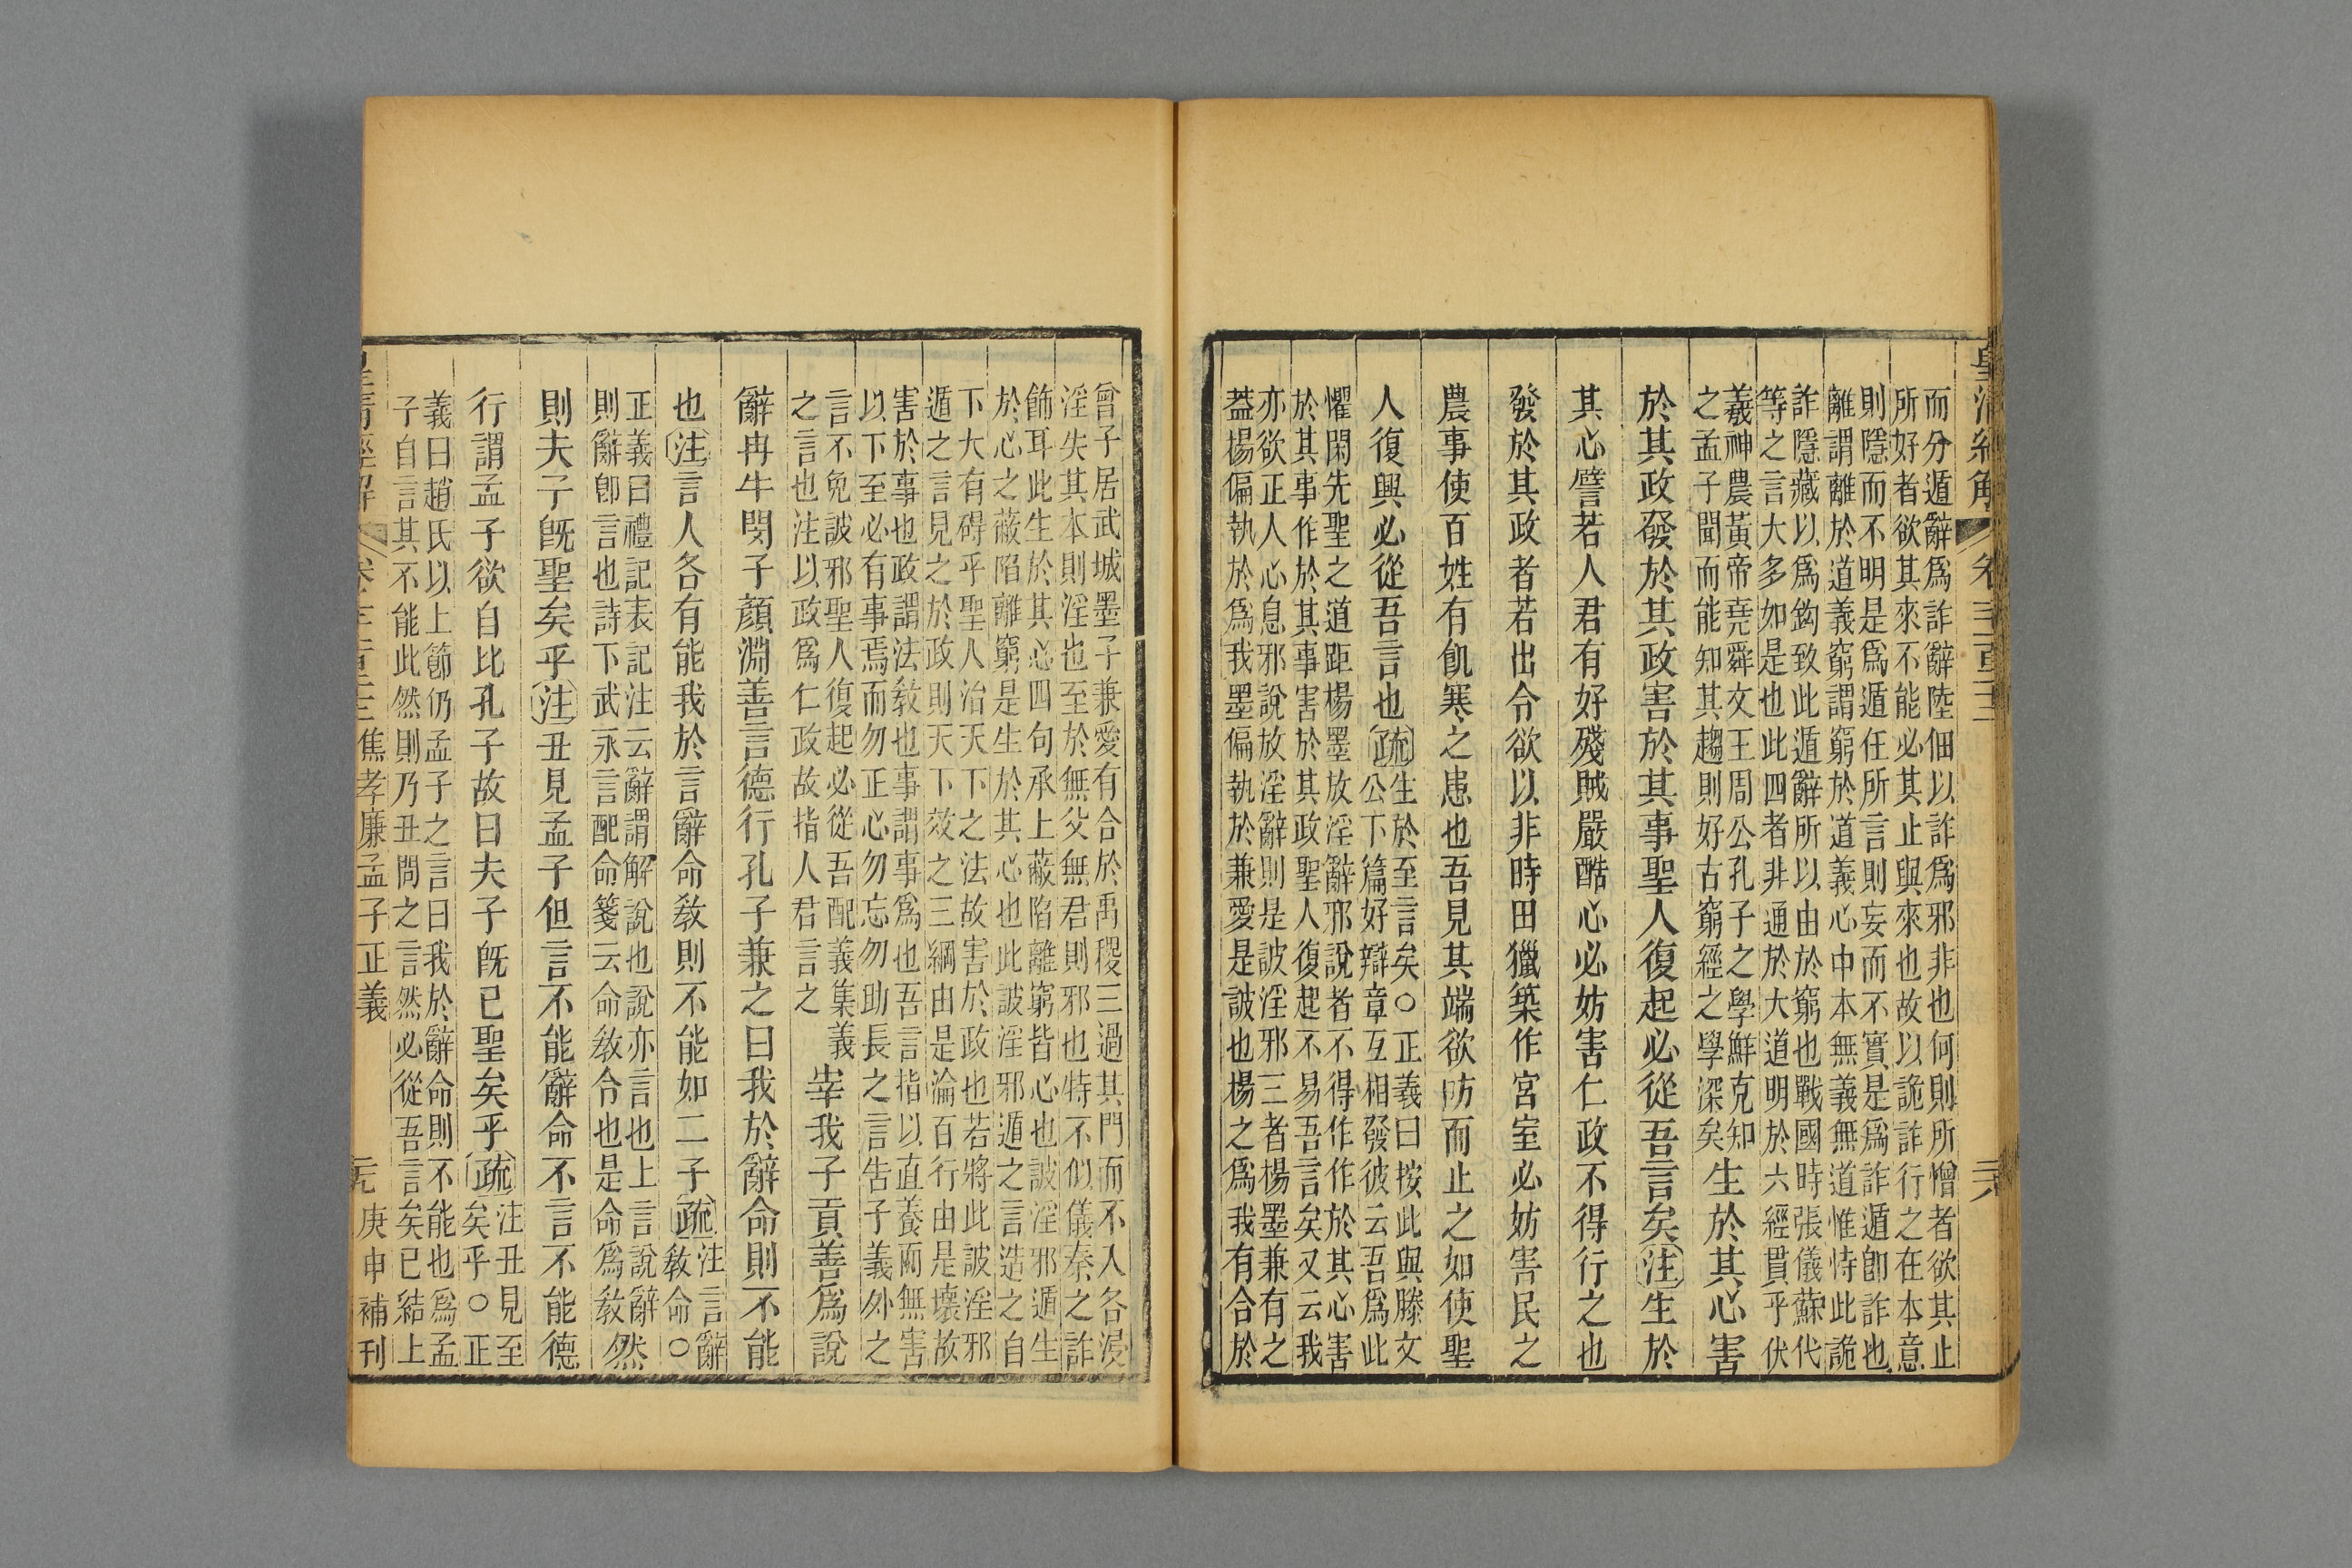 皇清經解 卷千一百二十三 六
而分遁辭爲詐辭陸佃以詐爲邪非也何則所憎者欲其止
所好者欲其來不能必其止與來也故以詭詐行之在本意
則隱而不明是爲遁任所言則妄而不實是爲詐遁卽詐也
離謂離於道義窮謂窮於道義心中本無義無道惟恃此詭
詐隱藏以爲鉤致此遁辭所以由於窮也戰國時張儀蘇代
等之言大多如是也此四者非通於大道明於六經貫乎伏
羲神農黃帝堯舜文王周公孔子之學鮮克知
之孟子聞而能知其趨則好古窮經之學深矣
生於其心害
於其政發於其政害於其事聖人復起必從吾言矣注生於
其心譬若人君有好殘賊嚴酷心必妨害仁政不得行之也
發於其政者若出令欲以非時田獵築作宮室必妨害民之
農事使百姓有飢寒之患也吾見其端欲防而止之如使聖
人復興必從吾言也疏
生於至言矣○正義曰按此與滕文
公下篇好辯章互相發彼云吾爲此
懼閑先聖之道距楊墨放淫辭邪說者不得作作於其心害
於其事作於其事害於其政聖人復起不易吾言矣又云我
亦欲正人心息邪說放淫辭則是詖淫邪三者楊墨兼有之
葢楊偏執於爲我墨偏執於兼愛是詖也楊之爲我有合於
曾子居武城墨子兼愛有合於禹稷三過其門而不入各浸
淫失其本則淫也至於無父無君則邪也特不似儀秦之詐
飾耳此生於其心四句承上蔽陷離窮皆心也詖淫邪遁生
於心之蔽陷離窮是生於其心也此詖淫邪遁之言造之自
下大有碍乎聖人治天下之法故害於政也若將此詖淫邪
遁之言見之於政則天下效之三綱由是淪百行由是壞故
害於事也政謂法敎也事謂事爲也吾言指以直養而無害
以下至必有事焉而勿正心勿忘勿助長之言告子義外之
言不免詖邪聖人復起必從吾配義集義
之言也注以政爲仁政故指人君言之
宰我子貢善爲說
辭冉牛閔子顏淵善言德行孔子兼之曰我於辭命則不能
也注言人各有能我於言辭命敎則不能如二子疏
注言辭
敎命○
正義曰禮記表記注云辭謂解說也說亦言也上言說辭然
則辭卽言也詩下武永言配命箋云命敎令也是命爲敎
則夫子旣聖矣乎注丑見孟子但言不能辭命不言不能德
行謂孟子欲自比孔子故曰夫子旣已聖矣乎疏
注丑見至
矣乎○正
義曰趙氏以上節仍孟子之言曰我於辭命則不能也爲孟
子自言其不能此然則乃丑問之言然必從吾言矣已結上
皇清經解 卷千一百二十三 焦孝廉孟子正義 元 庚申補刊